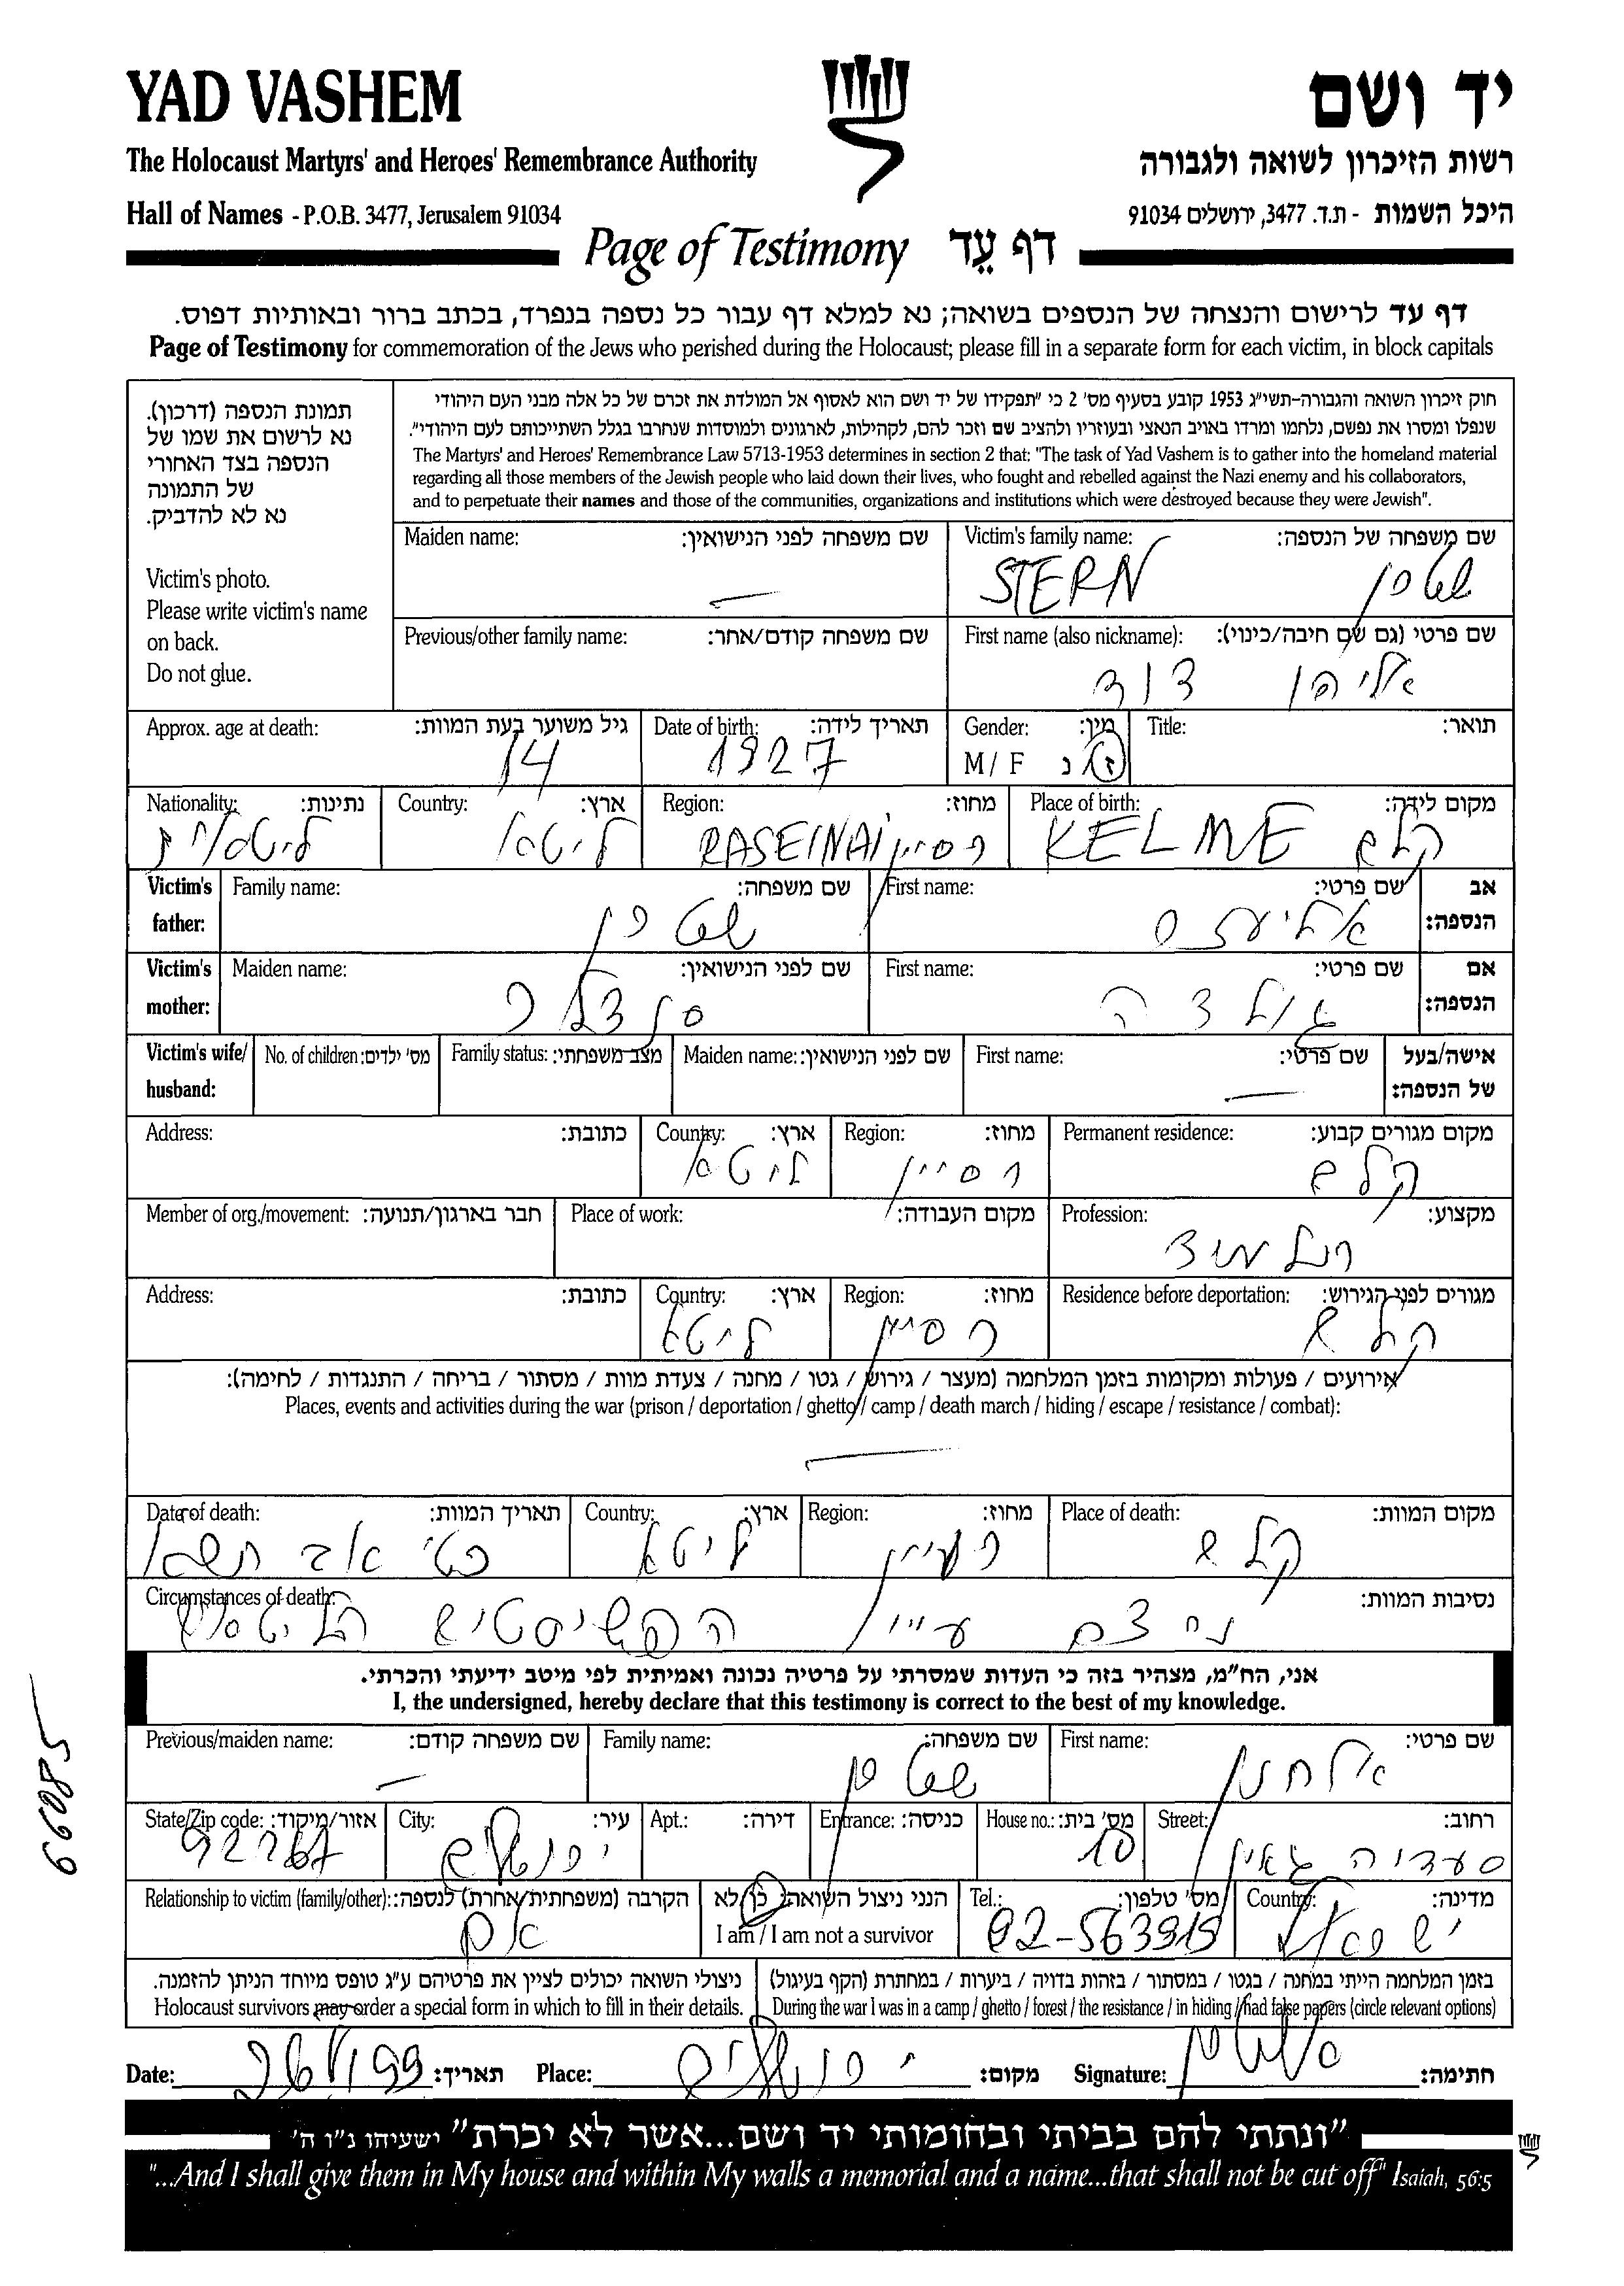 YAD VASHEM
יד ושם
The Holocaust Martyrs' and Heroes' Remembrance Authority
רשות הזיכרון לשואה ולגבורה
Hall of Names - P.O.B. 3477, Jerusalem 91034
היכל השמות - ת.ד. 3477, ירושלים 91034
Page of Testimony דף עֵד
דף עד לרישום והנצחה של הנספים בשואה; נא למלא דף עבור כל נספה בנפרד, בכתב ברור ובאותיות דפוס.
Page of Testimony for commemoration of the Jews who perished during the Holocaust; please fill in a separate form for each victim, in block capitals
תמונת הנספה (דרכון).
נא לרשום את שמו של
הנספה בצד האחורי
של התמונה
נא לא להדביק.
Victim's photo.
Please write victim's name
on back.
Do not glue.
חוק זיכרון השואה והגבורה-תשי״ג 1953 קובע בסעיף מס׳ 2 כי ״תפקידו של יד ושם הוא לאסוף אל המולדת את זכרם של כל אלה מבני העם היהודי
שנפלו ומסרו את נפשם, נלחמו ומרדו באויב הנאצי ובעוזריו ולהציב שם וזכר להם, לקהילות, לארגונים ולמוסדות שנחרבו בגלל השתייכותם לעם היהודי״.
The Martyrs' and Heroes' Remembrance Law 5713-1953 determines in section 2 that: "The task of Yad Vashem is to gather into the homeland material
regarding all those members of the Jewish people who laid down their lives, who fought and rebelled against the Nazi enemy and his collaborators,
and to perpetuate their names and those of the communities, organizations and institutions which were destroyed because they were Jewish".
Maiden name: שם משפחה לפני הנישואין: Victim's family name: שם משפחה של הנספה:
STERN שטרן
Previous/other family name: שם משפחה קודם/אחר: First name (also nickname): שם פרטי (גם שם חיבה/כינוי):
אליהו דוד
Approx. age at death: גיל משוער בעת המוות: Date of birth: תאריך לידה: Gender: מין: Title: תואר:
14 1927 M / F ז/נ
Nationality: נתינות: Country: ארץ: Region: מחוז: Place of birth: מקום לידה:
ליטאית ליטא RASEINAI רסיין KELME קלם
Victim's father: Family name: שם משפחה: First name: שם פרטי: אב הנספה:
שטרן אליעזר
Victim's mother: Maiden name: שם לפני הנישואין: First name: שם פרטי: אם הנספה:
סנדלר גולדה
Victim's wife/ husband: No. of children: מס׳ ילדים: Family status: מצב משפחתי: Maiden name: שם לפני הנישואין: First name: שם פרטי: אישה/בעל של הנספה:
Address: כתובת: Country: ארץ: Region: מחוז: Permanent residence: מקום מגורים קבוע:
ליטא רסיין קלם
Member of org./movement: חבר בארגון/תנועה: Place of work: מקום העבודה: Profession: מקצוע:
תלמיד
Address: כתובת: Country: ארץ: Region: מחוז: Residence before deportation: מגורים לפני הגירוש:
ליטא רסיין קלם
אירועים / פעולות ומקומות בזמן המלחמה (מעצר / גירוש / גטו / מחנה / צעדת מוות / מסתור / בריחה / התנגדות / לחימה):
Places, events and activities during the war (prison / deportation / ghetto / camp / death march / hiding / escape / resistance / combat):
Date of death: תאריך המוות: Country: ארץ: Region: מחוז: Place of death: מקום המוות:
אב תשא ליטא רסיין קלם
Circumstances of death: נסיבות המוות:
הפשיסטים הליטאים
אני, הח״מ, מצהיר בזה כי העדות שמסרתי על פרטיה נכונה ואמיתית לפי מיטב ידיעתי והכרתי.
I, the undersigned, hereby declare that this testimony is correct to the best of my knowledge.
Previous/maiden name: שם משפחה קודם: Family name: שם משפחה: First name: שם פרטי:
שטרן אלחנן
State/Zip code: אזור/מיקוד: City: עיר: Apt.: דירה: Entrance: כניסה: House no.: מס׳ בית: Street: רחוב:
92267 ירושלים 10 סעדיה גאון
Relationship to victim (family/other): הקרבה (משפחתית/אחרת) לנספה: הנני ניצול השואה: כן/לא Tel.: מס׳ טלפון: Country: מדינה:
אח I am / I am not a survivor ישראל
ניצולי השואה יכולים לציין את פרטיהם ע״ג טופס מיוחד הניתן להזמנה.
Holocaust survivors may order a special form in which to fill in their details.
בזמן המלחמה הייתי במחנה / בגטו / במסתור / בזהות בדויה / ביערות / במחתרת (הקף בעיגול)
During the war I was in a camp / ghetto / forest / the resistance / in hiding / had false papers (circle relevant options)
Date: תאריך: Place: ירושלים מקום: Signature: חתימה:
״ונתתי להם בביתי ובחומותי יד ושם...אשר לא יכרת״ ישעיהו נ״ו ה׳
"...And I shall give them in My house and within My walls a memorial and a name...that shall not be cut off" Isaiah, 56:5